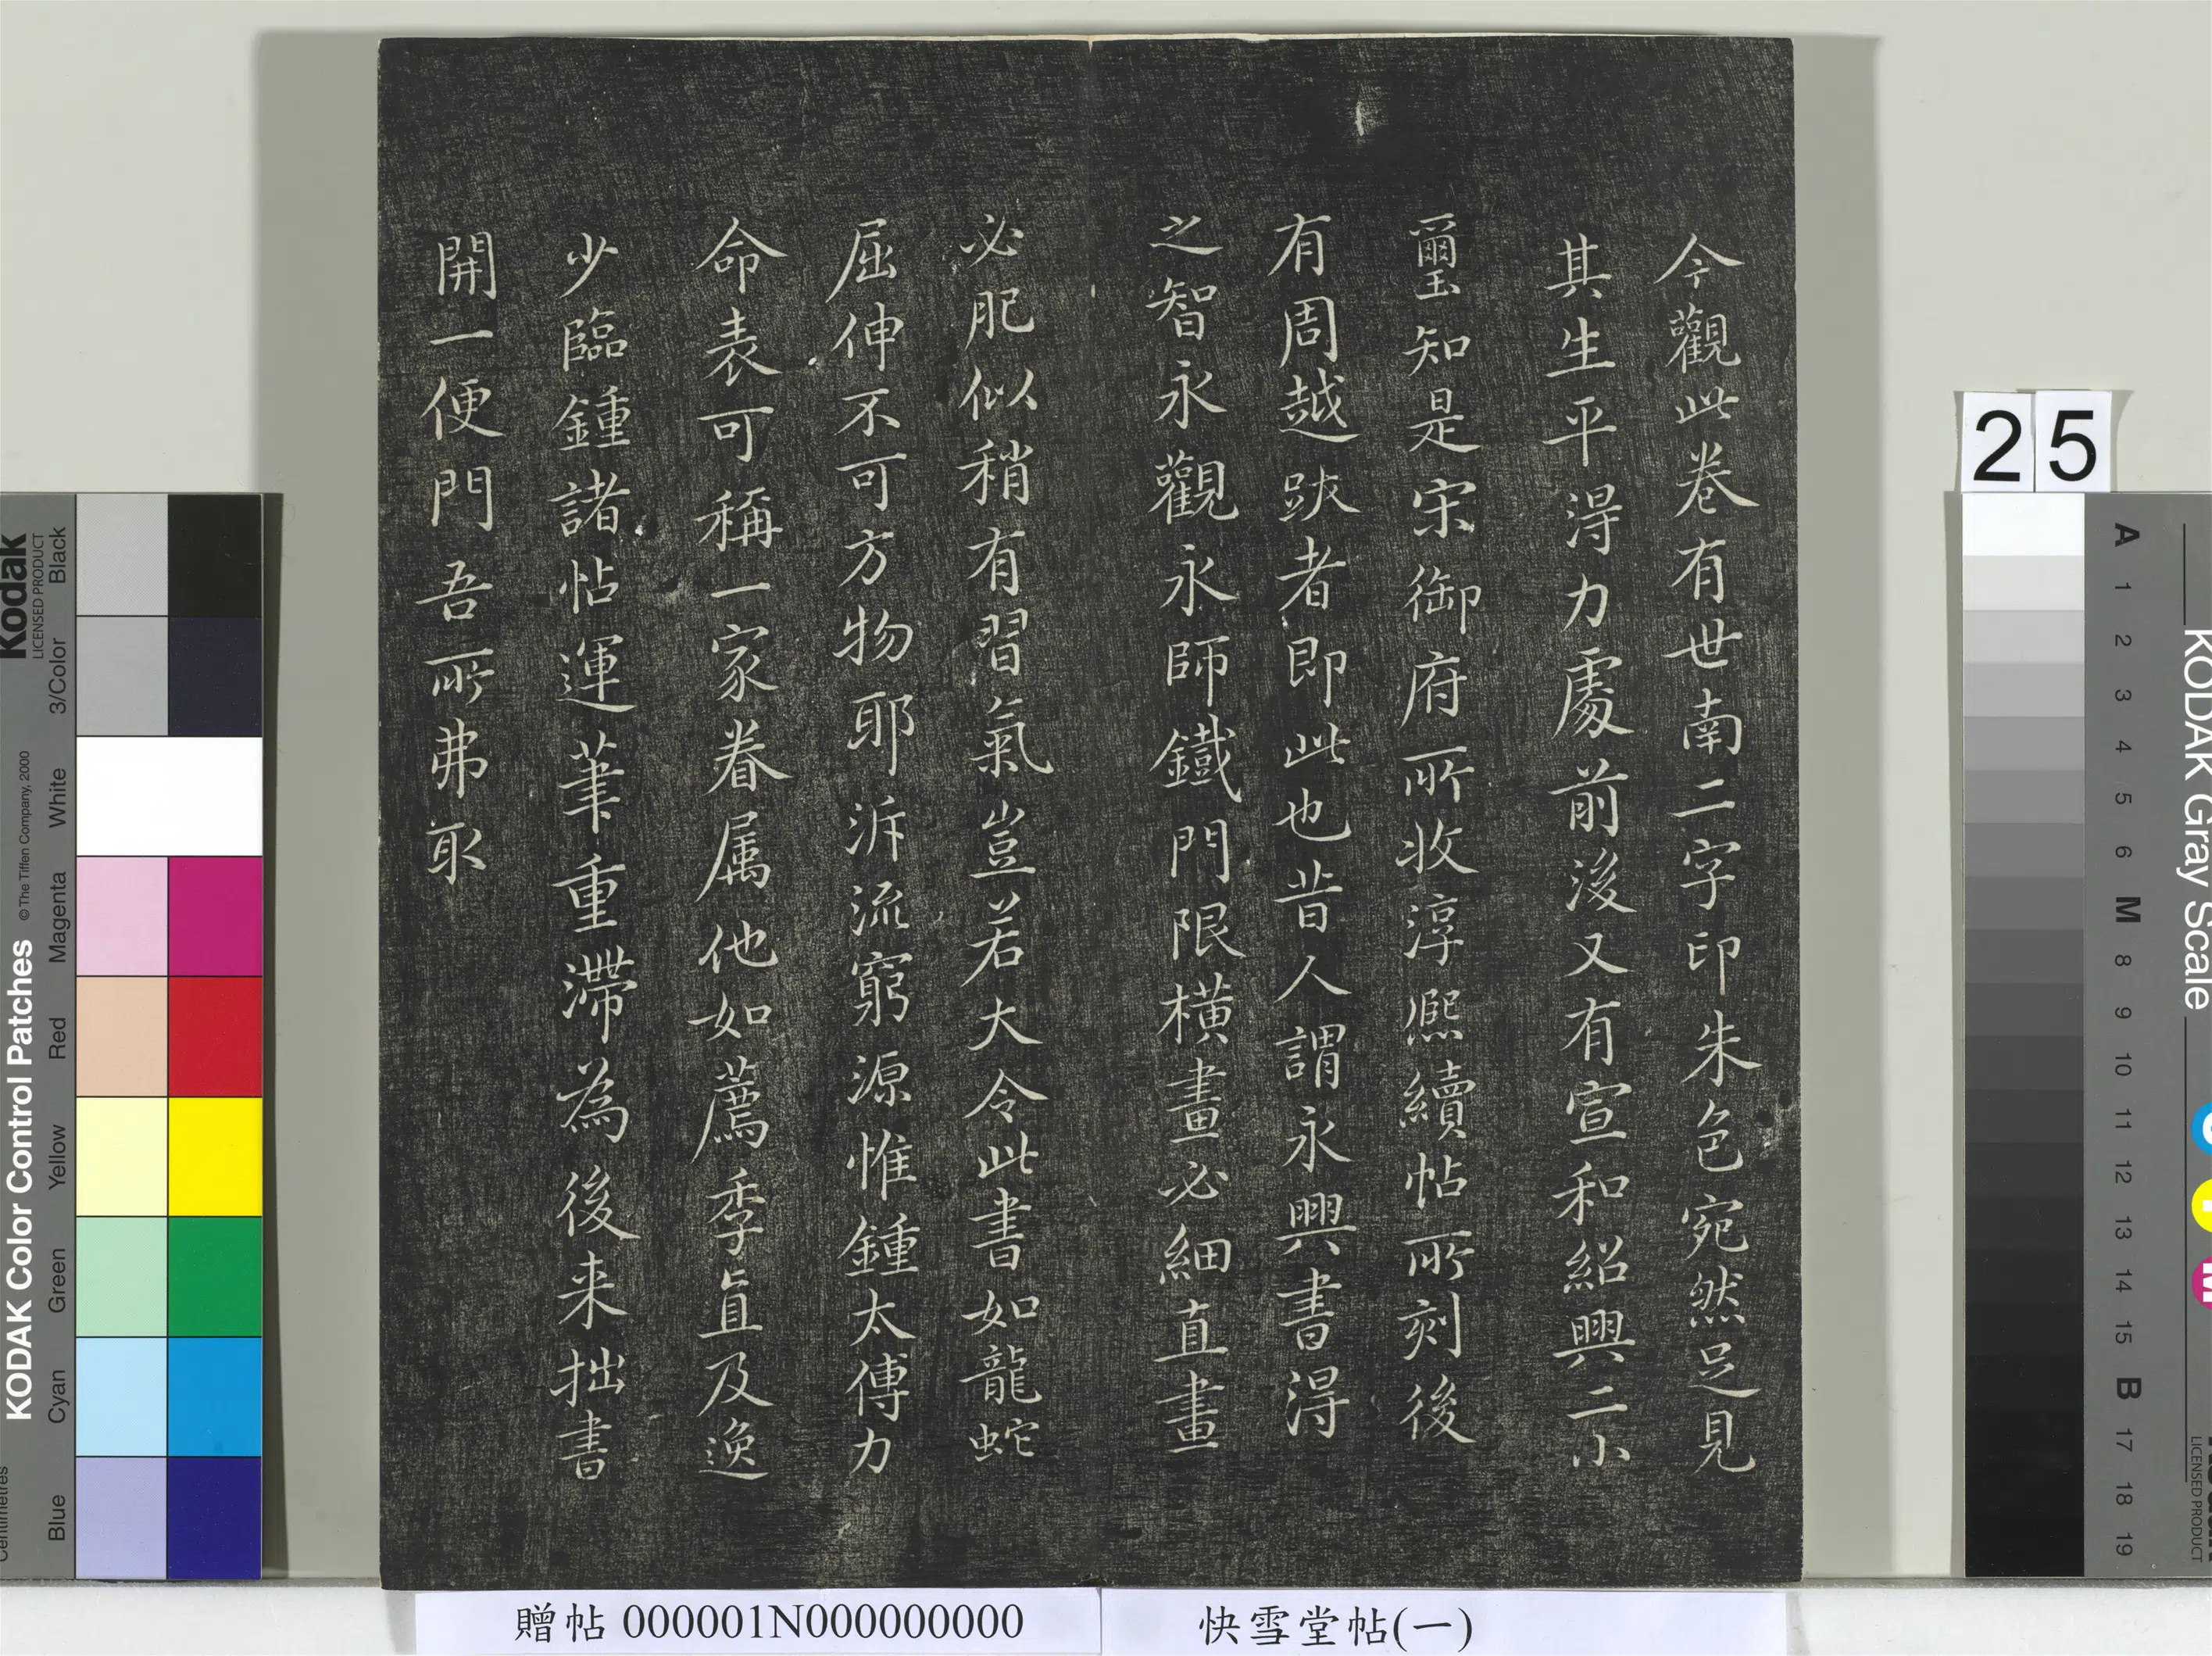 今觀此卷有世南二字印朱色宛然足見
其生平淂力處前後又有宣和紹興二小
璽知是宋御府所收淳熙續帖所刻後
有周越跋者即此也昔人謂永興書淂
之智永觀永師鐵門限橫畫必細直畫
必肥似稍有習氣豈若大令此書如龍蛇
屈伸不可方物耶泝流窮源惟鍾太傅力
命表可稱一家眷属他如薦季直及逸
少臨鍾諸帖運筆重滯為後来拙書
開一便門吾所弗取
贈帖 000001N000000000
快雪堂帖(一)
25
Kodak
LICENSED PRODUCT
KODAK Color Control Patches
© The Tiffen Company, 2000
Centimetres
Black
3/Color
White
Magenta
Red
Yellow
Green
Cyan
Blue
KODAK Gray Scale
A 1 2 3 4 5 6 M 8 9 10 11 12 13 14 15 B 17 18 19
C
Y
M
LICENSED PRODUCT